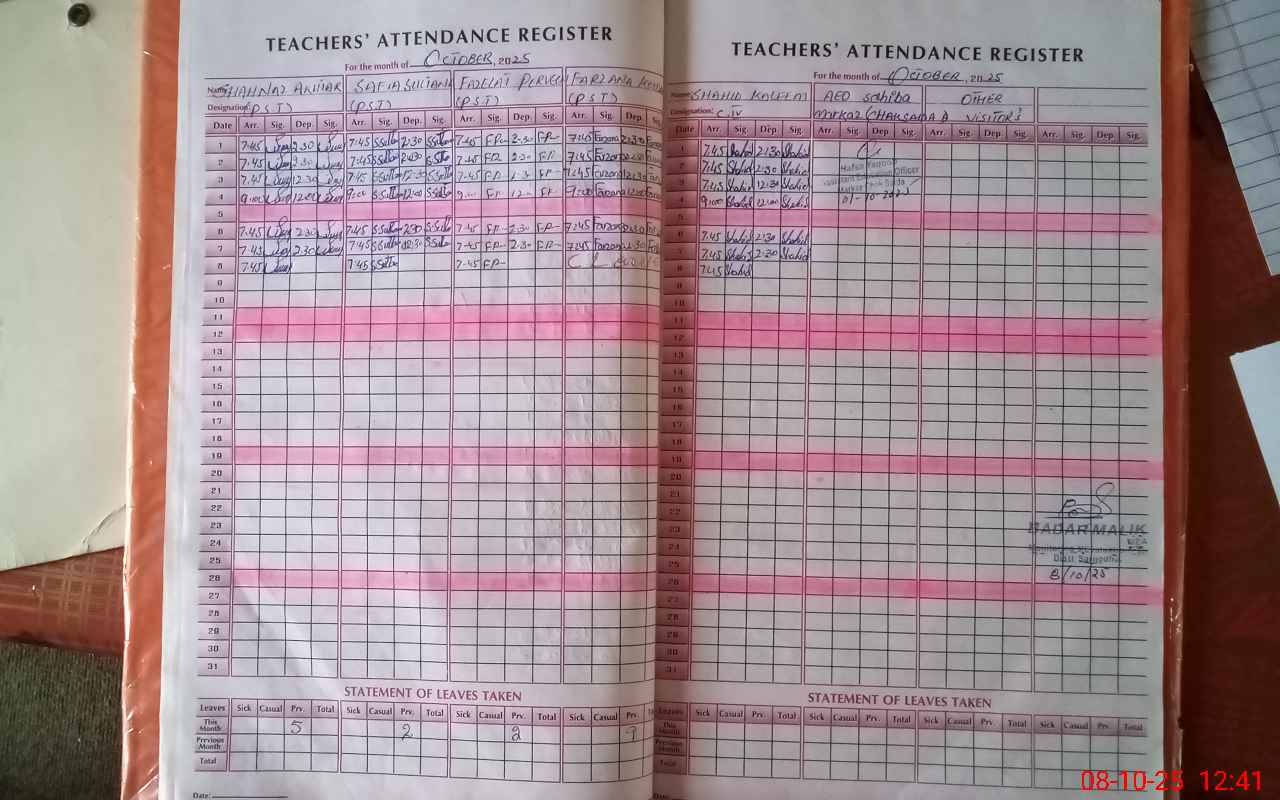 TEACHERS' ATTENDANCE REGISTER
For the month of October, 2025
Name SHAHNAZ AKHTAR SAFIA SULTANA FARZANA
Designation: (P.S.T) (P.S.T) (P.S.T) (P.S.T)
Date Arr. Sig. Dep. Sig. Arr. Sig. Dep. Sig. Arr. Sig. Dep. Sig. Arr. Sig. Dep. Sig.
1 7.45 2.30 7.45 SSultan 2:30 SSultan 7-45 FP- 2-30 FP- 7:45 Farzana 2:30
2 7.45 2.30 7.45 SSultan 2:30 SSultan 7-45 FP 2-30 FP- 7:45 Farzana 2:30
3 7.45 12.30 7.45 SSultan 12:30 SSultan 7-45 FP- FP- 7:45 Farzana 12:30
4 9:00 12:00 SSultan 12:00 SSultan FP- FP- 9:00 Farzana 12:00
5
6 7.45 2.30 7.45 SSultan 2:30 SSultan 7-45 FP- 2-30 FP- 7:45 Farzana 2:30
7 7.45 2.30 7.45 SSultan 02:30 SSultan 7-45 FP- 2-30 FP- 7:45 Farzana 2:30
8 7.45 7.45 SSultan 7-45 FP- C L
9
10
11
12
13
14
15
16
17
18
19
20
21
22
23
24
25
26
27
28
29
30
31
STATEMENT OF LEAVES TAKEN
Leaves Sick Casual Prv. Total Sick Casual Prv. Total Sick Casual Prv. Total Sick Casual Prv.
This Month 5 2 2 9
Previous Month
Total
Date:
TEACHERS' ATTENDANCE REGISTER
For the month of October, 2025
Name SHAHID KALEEM AEO Sahiba OTHER
Designation: C.IV MARKAZ VISITOR'S
Date Arr. Sig. Dep. Sig. Arr. Sig. Dep. Sig. Arr. Sig. Dep. Sig. Arr. Sig. Dep. Sig.
1 7.45 Shahid 2:30 Shahid
2 7.45 Shahid 2:30 Shahid
3 7.45 Shahid 12:30 Shahid
4 9:00 Shahid 12:00 Shahid
5
6 7.45 Shahid 2:30 Shahid
7 7.45 Shahid 2:30 Shahid
8 7.45 Shahid
9
10
11
12
13
14
15
16
17
18
19
20
21
22
23
24
25
26
27
28
29
30
31
Education Officer
BADAR MALIK
8/10/25
STATEMENT OF LEAVES TAKEN
Leaves Sick Casual Prv. Total Sick Casual Prv. Total Sick Casual Prv. Total Sick Casual Prv. Total
This Month
Previous Month
Total
Date:
08-10-25 12:41